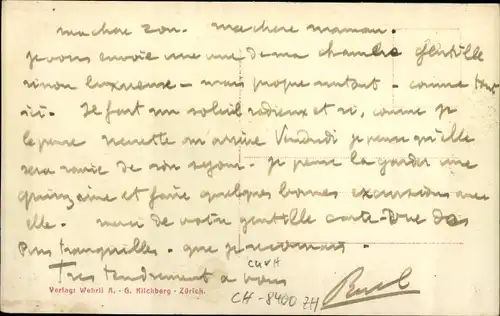 ma chere Zon. ma chere maman.
je vous envoie une vue de ma chambre gentille
sinon luxueuse – mais propre surtout. comme tout
ici. Il fait un soleil radieux et si, comme je
le pense nenette m'arrive Vendredi je pense qu'elle
sera ravie de son sejour. je pense la garder une
quinzaine et faire quelques bonnes excursions avec
elle. merci de votre gentille carte-vue des
Pins tranquilles. que je reconnais.
Tres tendrement a vous
CH-8400 ZH
Verlag: Wehrli A.-G. Kilchberg - Zürich.